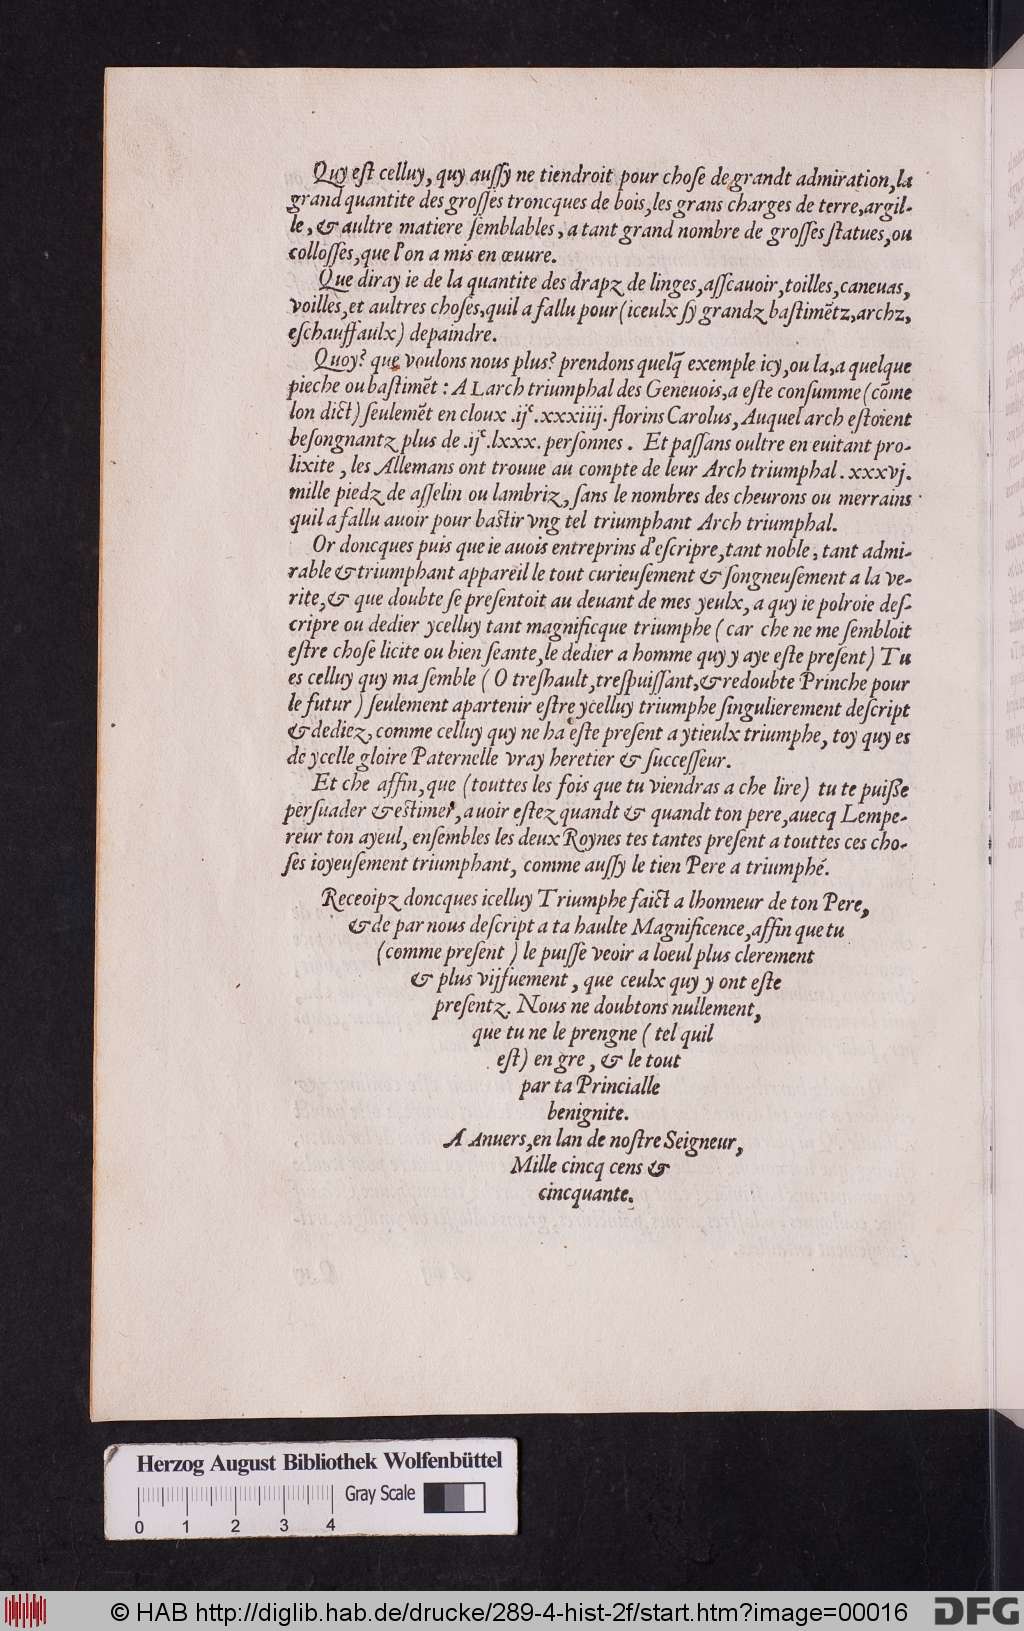 Quy eſt celluy, quy auſſy ne tiendroit pour choſe de grandt admiration, la
grand quantite des groſſes troncques de bois, les grans charges de terre, argil-
le, & aultre matiere ſemblables, a tant grand nombre de groſſes ſtatues, ou
colloſſes, que l'on a mis en œuure.
Que diray ie de la quantite des drapz de linges, aſſcauoir, toilles, caneuas,
voilles, et aultres choſes, quil a fallu pour (iceulx ſy grandz baſtimẽtz, archz,
eſchauffaulx) depaindre.
Quoy? que voulons nous plus? prendons quelq̃ exemple icy, ou la, a quelque
pieche ou baſtimẽt : A Larch triumphal des Geneuois, a eſte conſumme (cõme
lon dict) ſeulemẽt en cloux .ijᶜ.xxxiiij. florins Carolus, Auquel arch eſtoient
beſongnantz plus de .ijᶜ.lxxx. perſonnes. Et paſſans oultre en euitant pro-
lixite, les Allemans ont trouue au compte de leur Arch triumphal .xxxvj.
mille piedz de aſſelin ou lambriz, ſans le nombres des cheurons ou merrains
quil a fallu auoir pour baſtir vng tel triumphant Arch triumphal.
Or doncques puis que ie auois entreprins d'eſcripre, tant noble, tant admi-
rable & triumphant appareil le tout curieuſement & ſongneuſement a la ve-
rite, & que doubte ſe preſentoit au deuant de mes yeulx, a quy ie polroie deſ-
cripre ou dedier ycelluy tant magnificque triumphe (car che ne me ſembloit
eſtre choſe licite ou bien ſeante, le dedier a homme quy y aye eſte preſent) Tu
es celluy quy ma ſemble (O treſhault, treſpuiſſant, & redoubte Prinche pour
le futur) ſeulement apartenir eſtre ycelluy triumphe ſingulierement deſcript
& dediez, comme celluy quy ne ha eſte preſent a ytieulx triumphe, toy quy es
de ycelle gloire Paternelle vray heretier & ſucceſſeur.
Et che affin, que (touttes les fois que tu viendras a che lire) tu te puiſſe
perſuader & eſtimer, auoir eſtez quandt & quandt ton pere, auecq Lempe-
reur ton ayeul, enſembles les deux Roynes tes tantes preſent a touttes ces cho-
ſes ioyeuſement triumphant, comme auſſy le tien Pere a triumphé.
Receoipz doncques icelluy Triumphe faict a lhonneur de ton Pere,
& de par nous deſcript a ta haulte Magnificence, affin que tu
(comme preſent) le puiſſe veoir a loeul plus clerement
& plus vijfuement, que ceulx quy y ont eſte
preſentz. Nous ne doubtons nullement,
que tu ne le prengne (tel quil
eſt) en gre, & le tout
par ta Princialle
benignite.
A Anuers, en lan de noſtre Seigneur,
Mille cincq cens &
cincquante.
Herzog August Bibliothek Wolfenbüttel
Gray Scale
0 1 2 3 4
© HAB http://diglib.hab.de/drucke/289-4-hist-2f/start.htm?image=00016
DFG